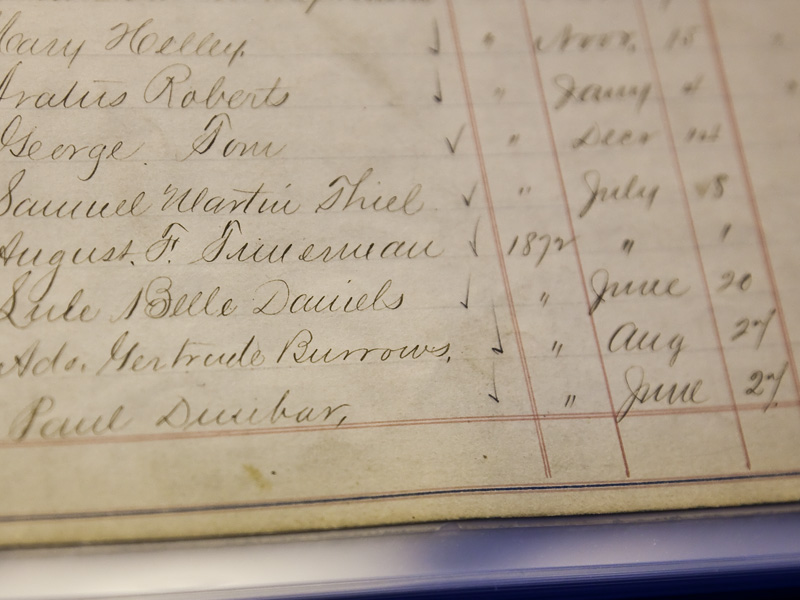 Mary Helley. ✓ " Novr. 15
Aratus Roberts ✓ " Jany 4
George. Tom ✓ " Decr
Samuel Martin Thiel ✓ " July 8
August. F. ✓ 1872 " "
Lule Belle Daniels ✓ " June 20
Ada. Gertrude Burrows. ✓ " Aug 27
Paul Dunbar, ✓ " June 27